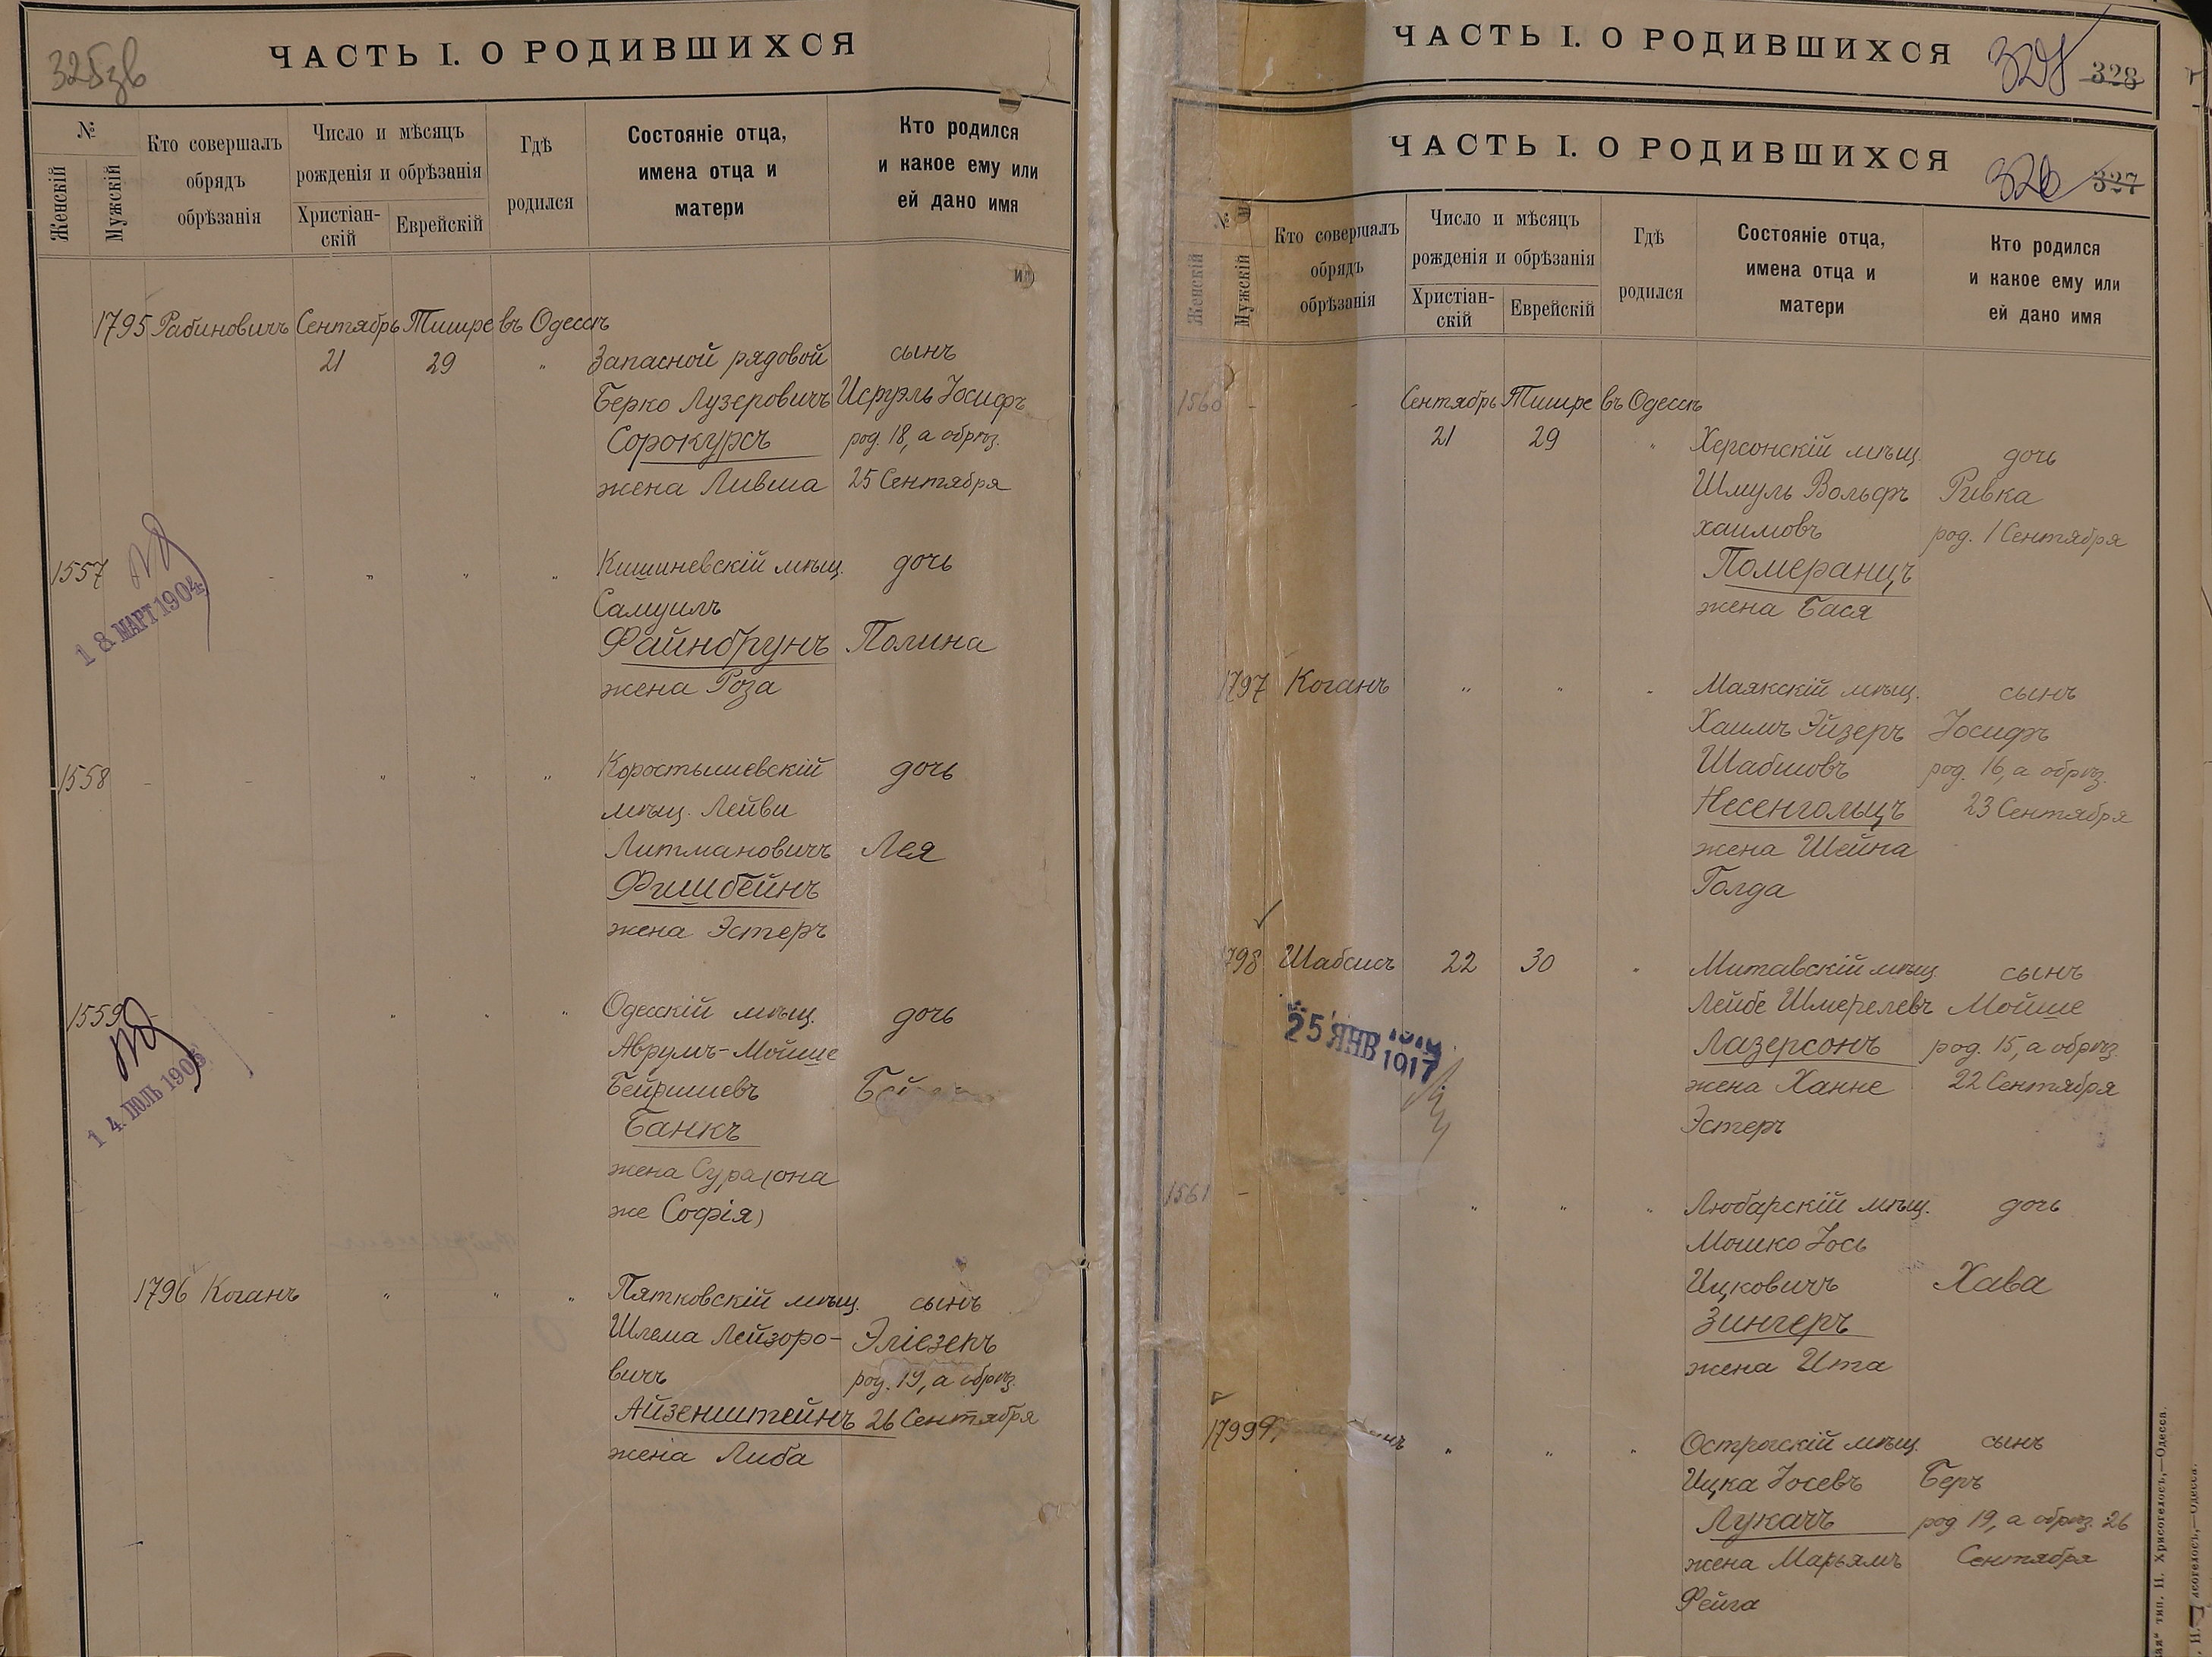 325зв
ЧАСТЬ I. О РОДИВШИХСЯ
№
Женскій
Мужскій
Кто совершалъ
обрядъ
обрѣзанія
Число и мѣсяцъ
рожденія и обрѣзанія
Христіан-
скій
Еврейскій
Гдѣ
родился
Состояніе отца,
имена отца и
матери
Кто родился
и какое ему или
ей дано имя
1795 Рабиновичъ Сентябрь Тишре въ Одессѣ
21 29 " Запасной рядовой сынъ
Берко Лузеровичъ Исруэль Іосифъ
Сорокурсъ род. 18, а обрѣз.
жена Ливша 25 Сентября
1557 - " " " Кишиневскій мѣщ. дочь
Самуилъ
Файнбрунъ Полина
жена Роза
18 МАРТ 1904
1558 - - " " " Коростышевскій дочь
мѣщ. Лейви
Литмановичъ Лея
Фишбейнъ
жена Эстеръ
1559 - - " " " Одесскій мѣщ. дочь
Аврумъ-Мойше
Бейришевъ
Банкъ
жена Сура (она
же Софія)
14 ІЮЛЬ
1796 Коганъ " " " Пятковскій мѣщ. сынъ
Шлема Лейзоро- Эліезекъ
вичъ род. 19, а обрѣз.
Айзенштейнъ 26 Сентября
жена Либа
ЧАСТЬ I. О РОДИВШИХСЯ
328
ЧАСТЬ I. О РОДИВШИХСЯ
326 327
№
Женскій
Мужскій
Кто совершалъ
обрядъ
обрѣзанія
Число и мѣсяцъ
рожденія и обрѣзанія
Христіан-
скій
Еврейскій
Гдѣ
родился
Состояніе отца,
имена отца и
матери
Кто родился
и какое ему или
ей дано имя
1560 - - Сентябрь Тишре въ Одессѣ
21 29 " Херсонскій мѣщ. дочь
Шмуль Вольфъ Ривка
хаимовъ род. 1 Сентября
Померанцъ
жена Бася
1797 Коганъ " " " Маякскій мѣщ. сынъ
Хаимъ Эйзеръ Іосифъ
Шабшовъ род. 16, а обрѣз.
Несенгольцъ 23 Сентября
жена Шейна
Голда
798 Шабсисъ 22 30 " Митавскій мѣщ. сынъ
Лейбе Шмерелевъ Мойше
Лазерсонъ род. 15, а обрѣз.
жена Ханне 22 Сентября
Эстеръ
25 ЯНВ 1917
1561 - " " " Любарскій мѣщ. дочь
Мошко Іось
Ицковичъ Хава
Зингеръ
жена Ита
1799 " " " Острогскій мѣщ. сынъ
Ицка Іосевъ Беръ
Лукачъ род. 19, а обрѣз. 26
жена Марьямъ Сентября
Фейга
тип. П. Хрисогелосъ,—Одесса.